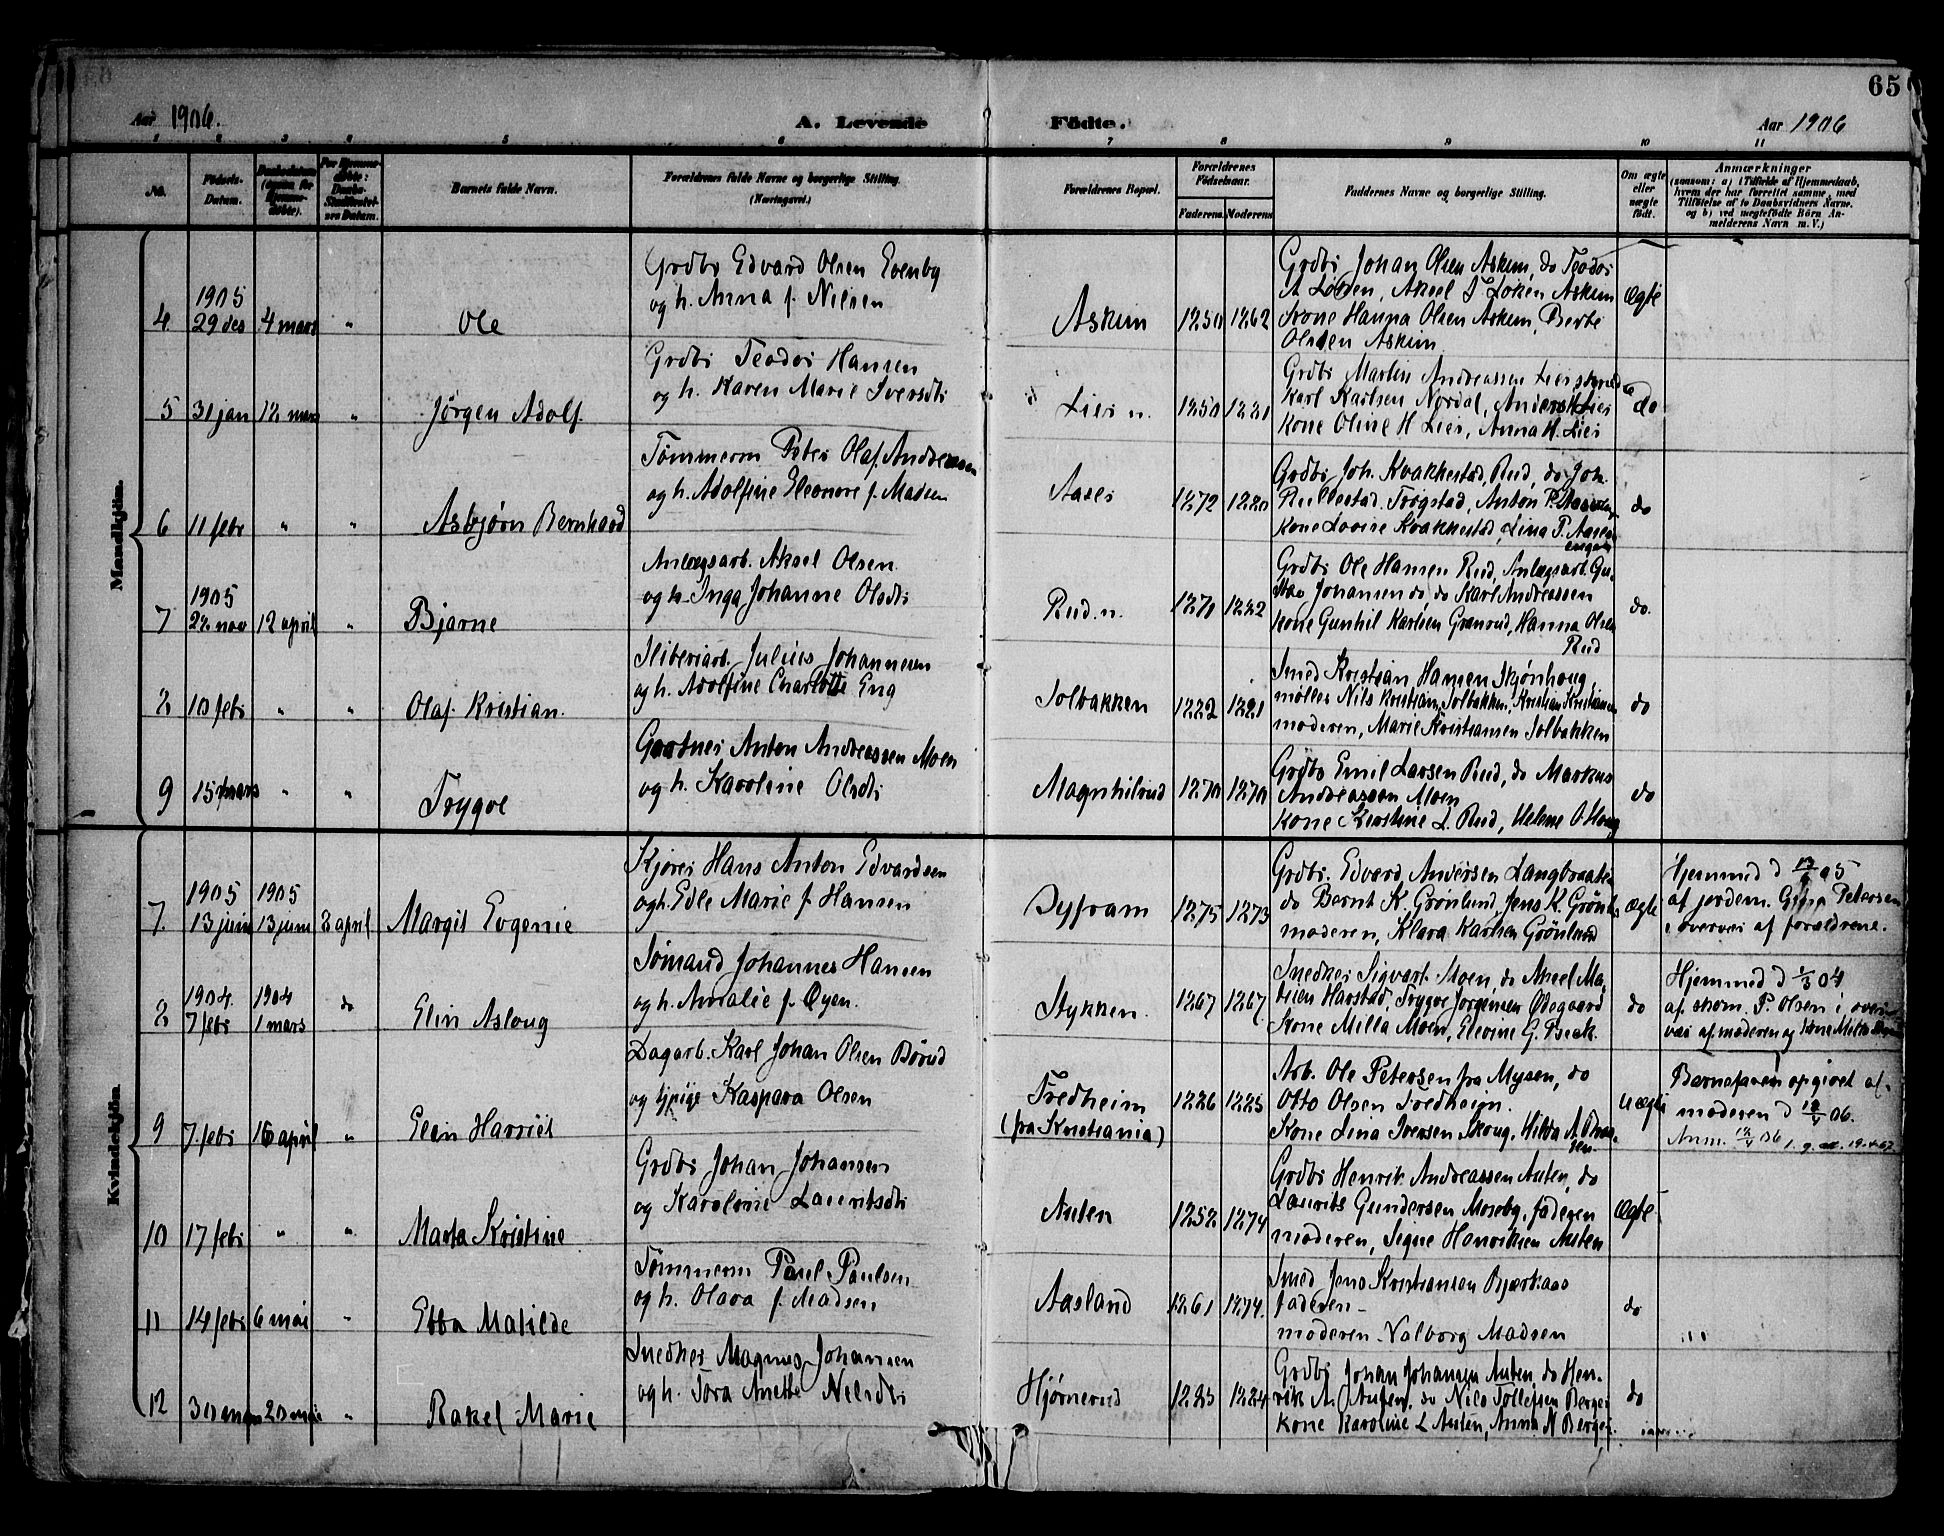 65
Aar 1906.
A. Levende
Födte.
Aar 1906
1 2 3 4 5 6 7 8 9 10 11
No.
Födsels-
Datum.
Barnets fulde Navn.
Forældrenes fulde Navne og borgerlige Stilling.
(Næringsvei.)
Forældrenes Bopæl.
Forældrenes
Födselsaar.
Faderens. Moderens.
Faddernes Navne og borgerlige Stilling.
Om ægte
eller
uægte
födt.
Anmærkninger
(saasom: a) i Tilfælde af Hjemmedaab,
hvem der har forrettet samme, med
Tilföielse af to Daabsvidners Navne.
og b) ved uegtefödte Börn An-
melderens Navn m. V.)
Mandkjön.
Grdbr Edvard Olsen Evenby
og h. Anna f. Nilsen
1905
4 29 des 4 mars " Ole
Askim 1850 1862
Grdbr Johan Olsen Askim, do Teodor
A Løken, Aksel T Løken Askim
Kone Hanna Olsen Askim, Berte
Olsen Askim
Ægte
Grdbr Teodor Hansen
og h. Karen Marie Iversdtr
5 31 jan 12 mars " Jørgen Adolf
Lier n. 1850 1881
Grdbr Martin Andreassen Lier
Karl Karlsen Nordal, Anders H Lier
Kone Oline H Lier, Anna H. Lier
do
Tømmerm Peter Olaf Andreassen
og h. Adolfine Eleonore f. Madsen
6 11 febr " " Asbjørn Bernhard
Aaser 1872 1880
Grdbr Joh. Kvakkestad, Rud, do Joh.
Rullestad Trøgstad, Anton P.
Kone Lovise Kvakkestad, Lina P. Aaser
do
Anlægsarb. Aksel Olsen
og h Inga Johanne Olsdtr
1905
7 22 nov 12 april " Bjarne
Rud. n. 1871 1882
Grdbr Ole Hansen Rud, Anlægsarb. Gu-
stav Johansen do do Karl Andreassen
Kone Gunhil Karlsen Granrud, Hanna Olsen
Rud
do.
Sliberiarb. Julius Johannesen
og h. Adolfine Charlotte Eng
8 10 febr " " Olaf Kristian.
Solbakken 1882 1881
Smed Kristian Hansen Skjønhaug,
møller Nils Kristians, Solbakken, Kristian Kristiansen
moderen, Marie Kristiansen Solbakken
do
Gartner Anton Andreassen Moen
og h. Karoline Olsdtr
9 15 mars " " Trygve
Magnhilrud 1870 1870
Grdbr Emil Larsen Rud, do Markus
Andreassen Moen
Kone Kirstine L. Rud, Helene O Haug
do
Kvindekjön.
Kjører Hans Anton Edvardsen
og h. Edle Marie f. Hansen
1905 1905
7. 13 juni 13 juni 8 april Margit Evgenie
Dyfram 1875 1873
Grdbr. Edvard Andersen Langbraaten
do Bernt K. Grønlund, Jens K. Grønl.
moderen, Klara Karlsen Grønlund
Ægte
Hjemmed d 13/6 05
af jordem. Gina Petersen
i overvær af forældrene.
Sømand Johannes Hansen
og h. Amalie f. Øyen.
1904. 1904
8 7 febr 1 mars do Elin Aslaug
Stykken. 1867 1867.
Snedker Sigvart Moen, do Aksel Ma-
tisen Havstad, Trygve Jørgensen Ødegaard
Kone Milla Moen, Elevine G. Beck.
do
Hjemmed d 1/3 04
af skom. P. Olsen i over-
vær af moderen og kone
Dagarb. Karl Johan Olsen Børud
og tj pige Kaspara Olsen
9 7. febr 16 april " Elin Harriet
Fredheim
(fra Kristiania)
1886 1885
Arb. Ole Petersen fra Mysen, do
Otto Olsen Fredheim.
Kone Lina Iversen Skoug, Hilda A.
Uægte
Barnefaren opgivet af
moderen d 18/4 06.
Anm. 18/4 06
Grdbr Johan Johansen
og Karoline Lauritsdtr
10 17 febr " " Marta Kristine
Auten 1852 1874
Grdbr Henrik Andreassen Auten, do
Laurits Gundersen Moseby, faderen
moderen, Signe Henriksen Auten
Ægte
Tømmerm Paul Paulsen
og h. Olava f. Madsen
11 14 febr 6 mai " Ebba Matilde
Aasland 1861 1874.
Smed Jens Kristiansen Bjærkaas
faderen-
moderen-Valborg Madsen
do
Snedker Magnus Johansen
og h. Tora Anette Nilsdtr
12 30 mars 20 mai " Rakel Marie
Hjørnerud 1885 1884
Grdbr Johan Johansen Auten, do Hen-
rik An Auten, do Nils Tollefsen Berger
Kone Karoline L Auten, Anna N Berger.
do